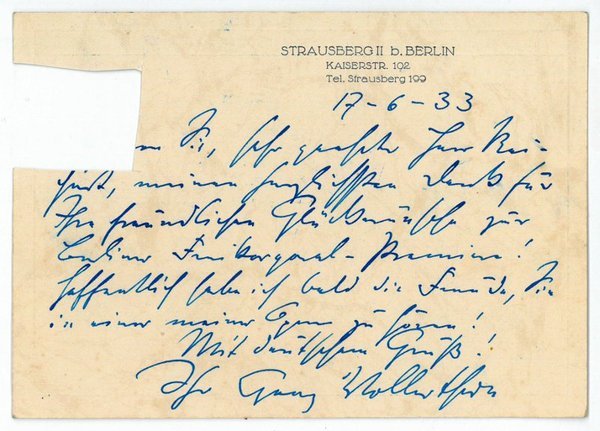 STRAUSBERG II b. BERLIN
KAISERSTR. 102
Tel. Strausberg 199
17-6-33
Sie, sehr geehrter Herr
meinen herzlichsten Dank für
Ihre freundlichen Glückwünsche zur
Berliner Freikorporal-Premiere!
Hoffentlich habe ich bald die Freude, Sie
in einer meiner Opern zu hören!
Mit deutschem Gruß!
Ihr Georg Vollerthun